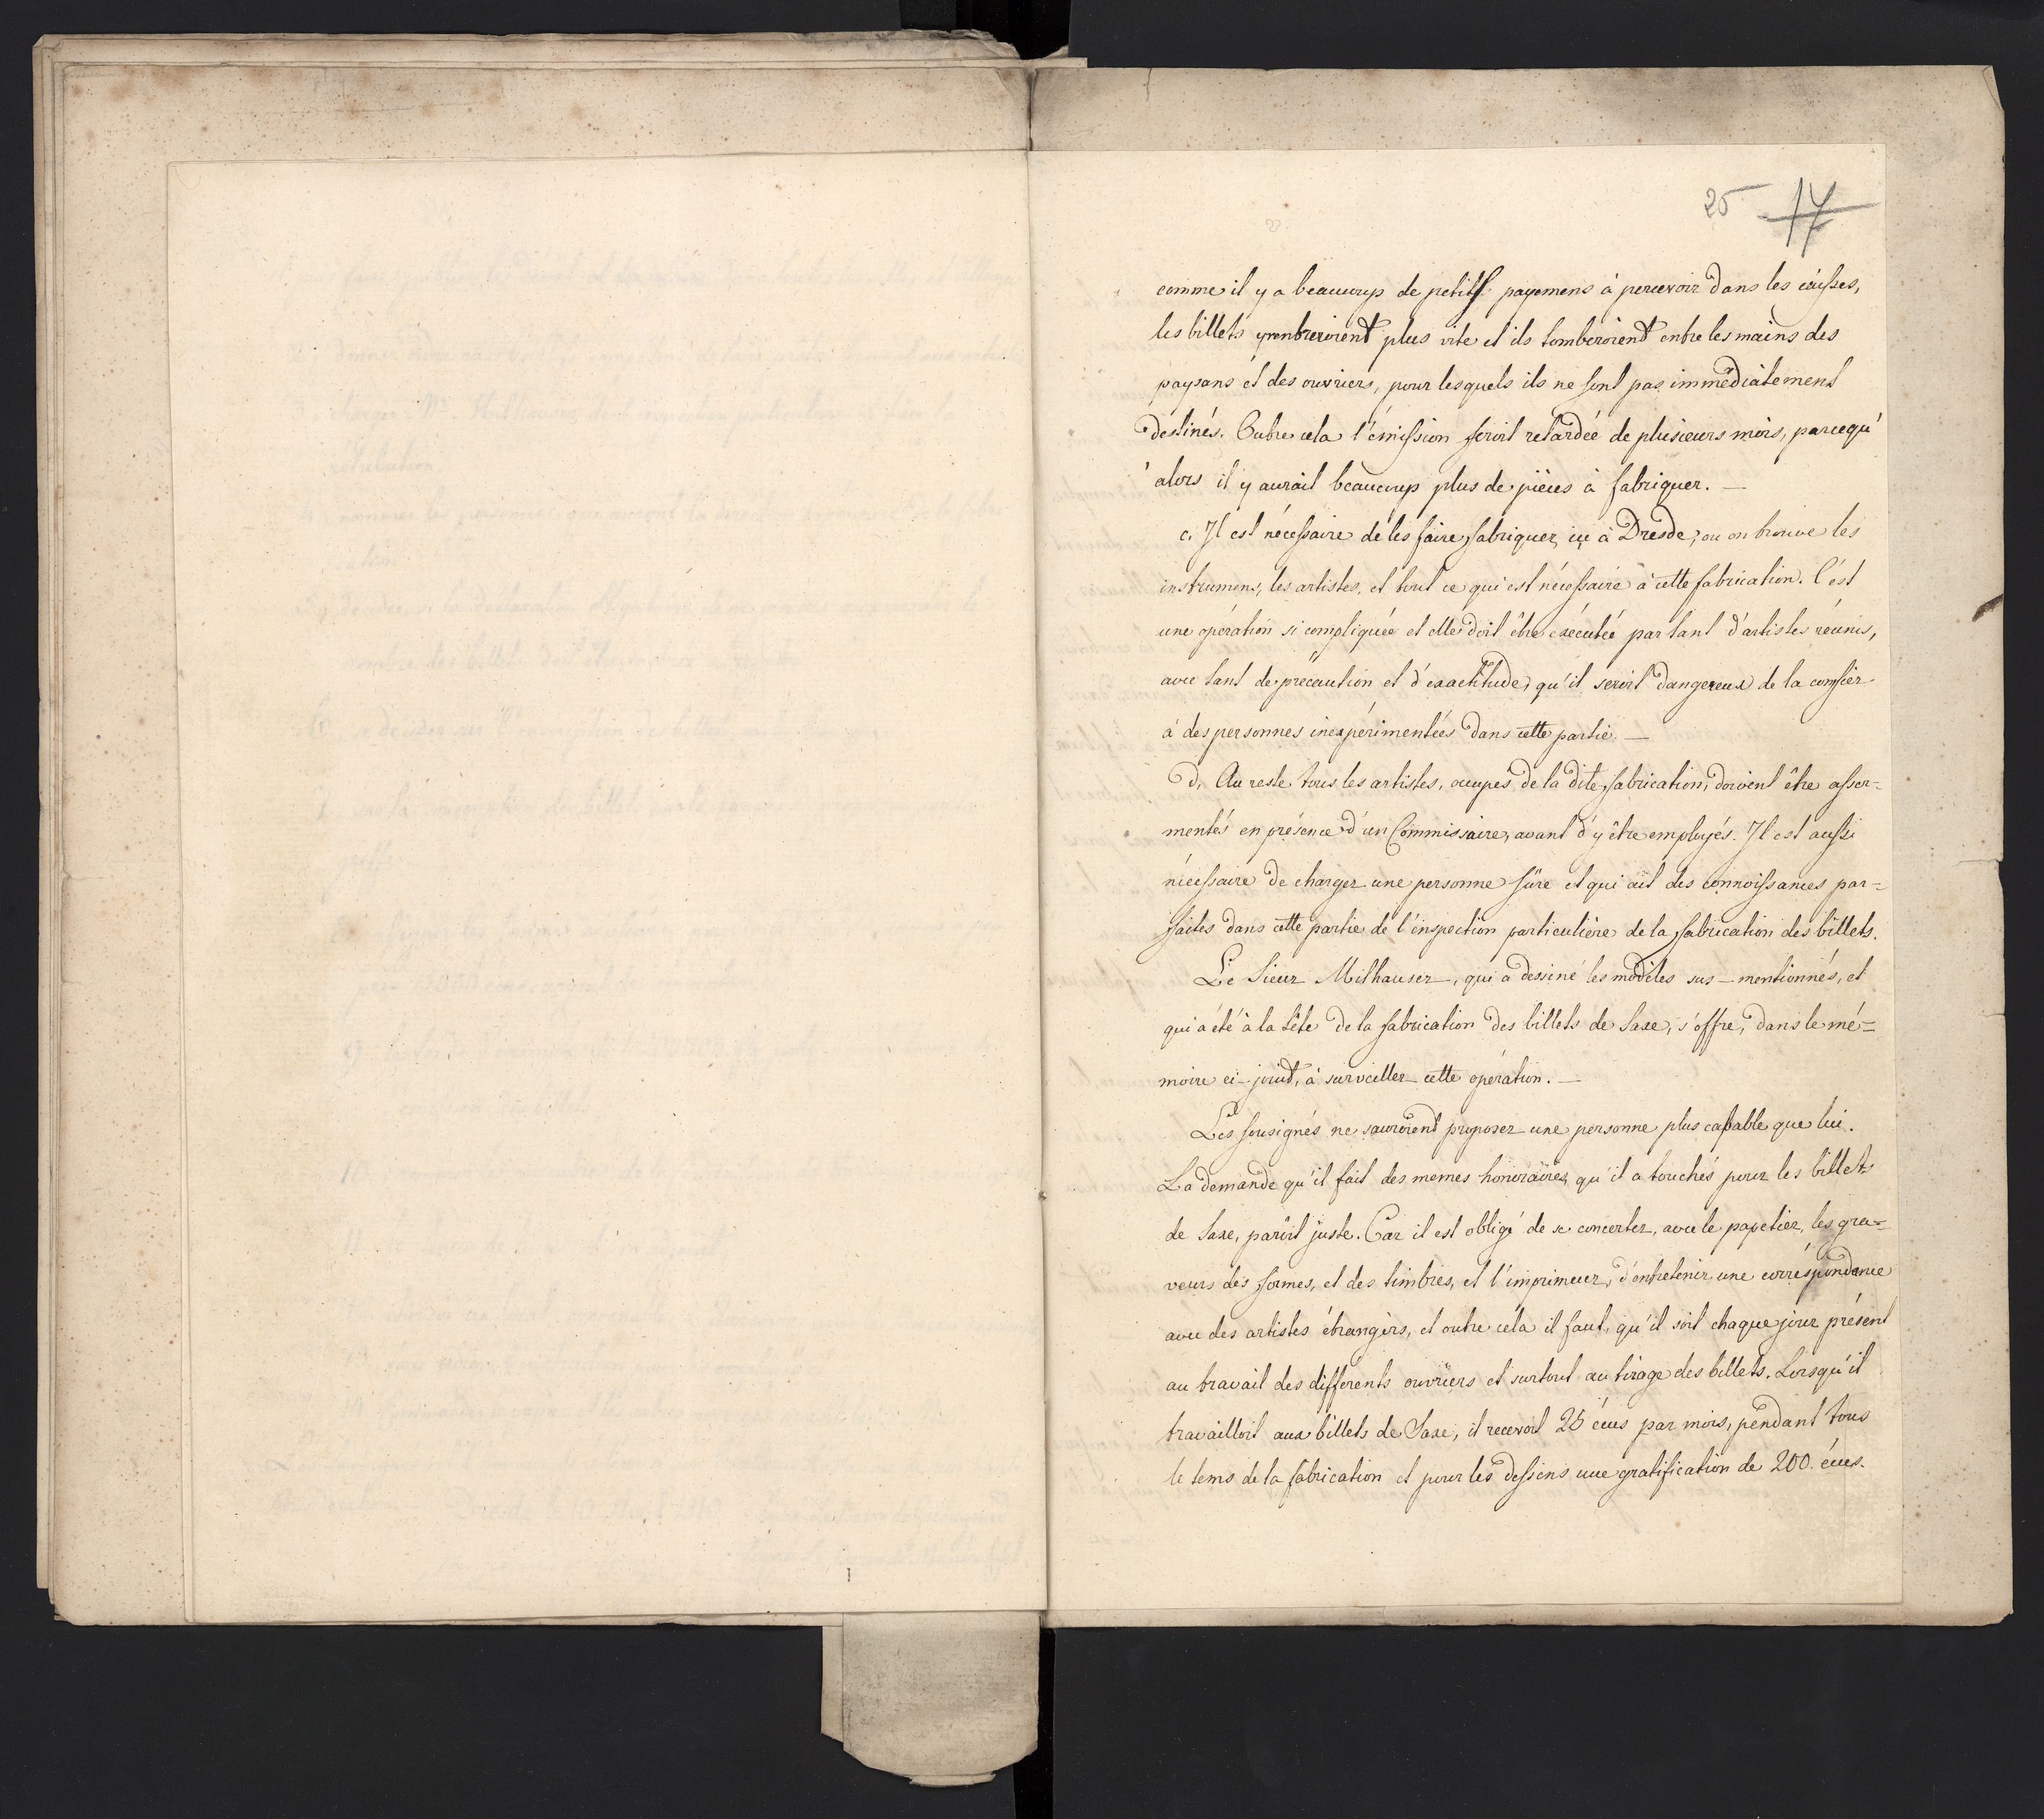 25 17
comme il y a beaucoup de petits payemens à percevoir dans les caisses,
les billets y rentreroient plus vite et ils tomberoient entre les mains des
paysans et des ouvriers, pour lesquels ils ne sont pas immédiatement
destinés. Outre cela l'émission seroit retardée de plusieurs mois, parcequ'
'alors il y aurait beaucoup plus de pièces à fabriquer. —
c. Il est nécessaire de les faire fabriquer ici à Dresde, ou on trouve les
instrumens, les artistes, et tout ce qui est nécessaire à cette fabrication. C'est
une opération si compliquée et elle doit être exécutée par tant d'artistes réunis,
avec tant de précaution et d'exactitude, qu'il seroit dangereux de la confier
à des personnes inexpérimentées dans cette partie. —
d. Au reste tous les artistes, occupés de la dite fabrication, doivent être asser=
mentés en présence d'un Commissaire, avant d'y être employés. Il est aussi
nécessaire de charger une personne sûre et qui ait des connoissances par=
faites dans cette partie de l'inspection particulière de la fabrication des billets.
Le Sieur Milhauser, qui a dessiné les modèles sus-mentionnés, et
qui a été à la tête de la fabrication des billets de Saxe, s'offre, dans le mé=
moire ci-joint, à surveiller cette opération. —
Les sousignés ne sauroient proposer une personne plus capable que lui.
La demande qu'il fait des memes honoraires, qu'il a touchés pour les billets
de Saxe, paroit juste. Car il est obligé de se concerter, avec le papetier, les gra=
veurs des formes, et des timbres, et l'imprimeur, d'entretenir une correspondance
avec des artistes étrangèrs, et outre cela il faut, qu'il soit chaque jour présent
au travail des differents ouvriers et surtout au tirage des billets. Lorsqu'il
travailloit aux billets de Saxe, il recevoit 25 écus par mois, pendant tous
le tems de la fabrication et pour les dessiens une gratification de 200. écus.